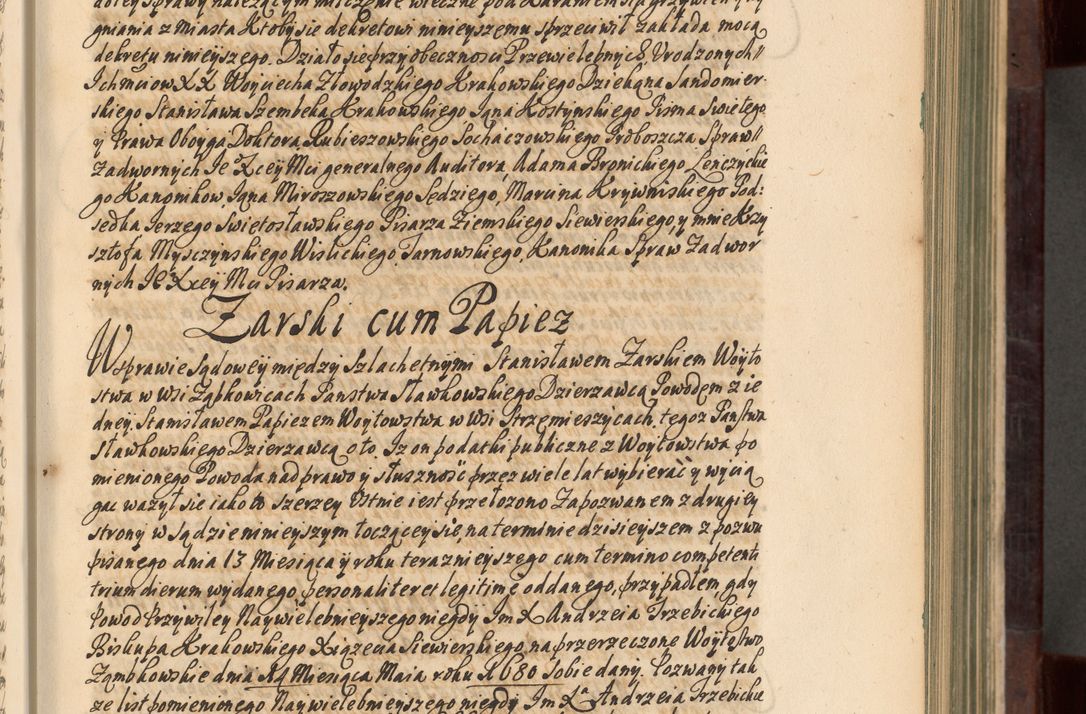 gniania z Miasta Ktoby sie dekretowi ninieyszemu sprzeciwił zakłada mocą
dekretu ninieyszego. Działo sie przy obecnosci Przewielebnych, Urodzonych
Ichmciow XX Woyciecha Złowodzkiego Krakowskiego Dziekana Sandomier
skiego Stanisława Szembeka Krakowskiego Jgna Kostynskiego Pisma Swietego
y Prawa Oboyga Doktora Rubieszowskiego Sochaczowskiego Proboszcza Spraw
Zadwornych Je Xcey Mci generalnego Auditora, Adama Bronickiego, Lenczyckie
go Kanonikow, Jgna Miroszowskiego Sedziego, Marcina Krywinskiego Pod:
sedka Jerzego Swietosławskiego Pisarza Ziemskiego Siewierskiego, y mnie Krzy
sztofa Mysczynskiego Wislickiego Tarnowskiego, Kanonika Spraw Zadwor
nych Je Xcey Mci Pisarza.
Zarski cum Papiez
W sprawie sądowey między szlachetnymi Stanisławem Zarskiem Woyto
stwa w Wsi Ząbkowicach Panstwa Sławkowskiego Dzierzawcą Powodem z ie
dney. Stanisławem Papiezem Woytowstwa w Wsi Strzemieszycach, tegoz Panstwa
Sławkowskiego Dzierzawcą oto. Iz on podatki publiczne z Woytowstwa po
mienionego Powoda nad prawo y słuszność przez wiele lat wybierać y wycią
gac ważył sie iako to szerzey Ustnie iest przełozono Zapozwanem z drugiey
strony w sądzie ninieyszym toczącey sie, na terminie dzisieyszem z pozwu
pisanego dnia 13 Miesiąca y roku teraznieyszego cum termino competenti
trium dierum wydanego, personaliter et legitime oddanego, przypadłem, gdy
Powod Przywiley Naywielebnieyszego niegdy Jm X Andrzeia Trzebickiego
Biskupa Krakowskiego Xiążecia Siewierskiego, na przerzeczone Woytostwo
Ząmbkowskie dnia 14 Miesiąca Maia roku 1680 sobie dany. Pozwany tak
ze list pomienionego Naywielebnieyszego niegdy Jm Xa Andrzeia Trzebickie